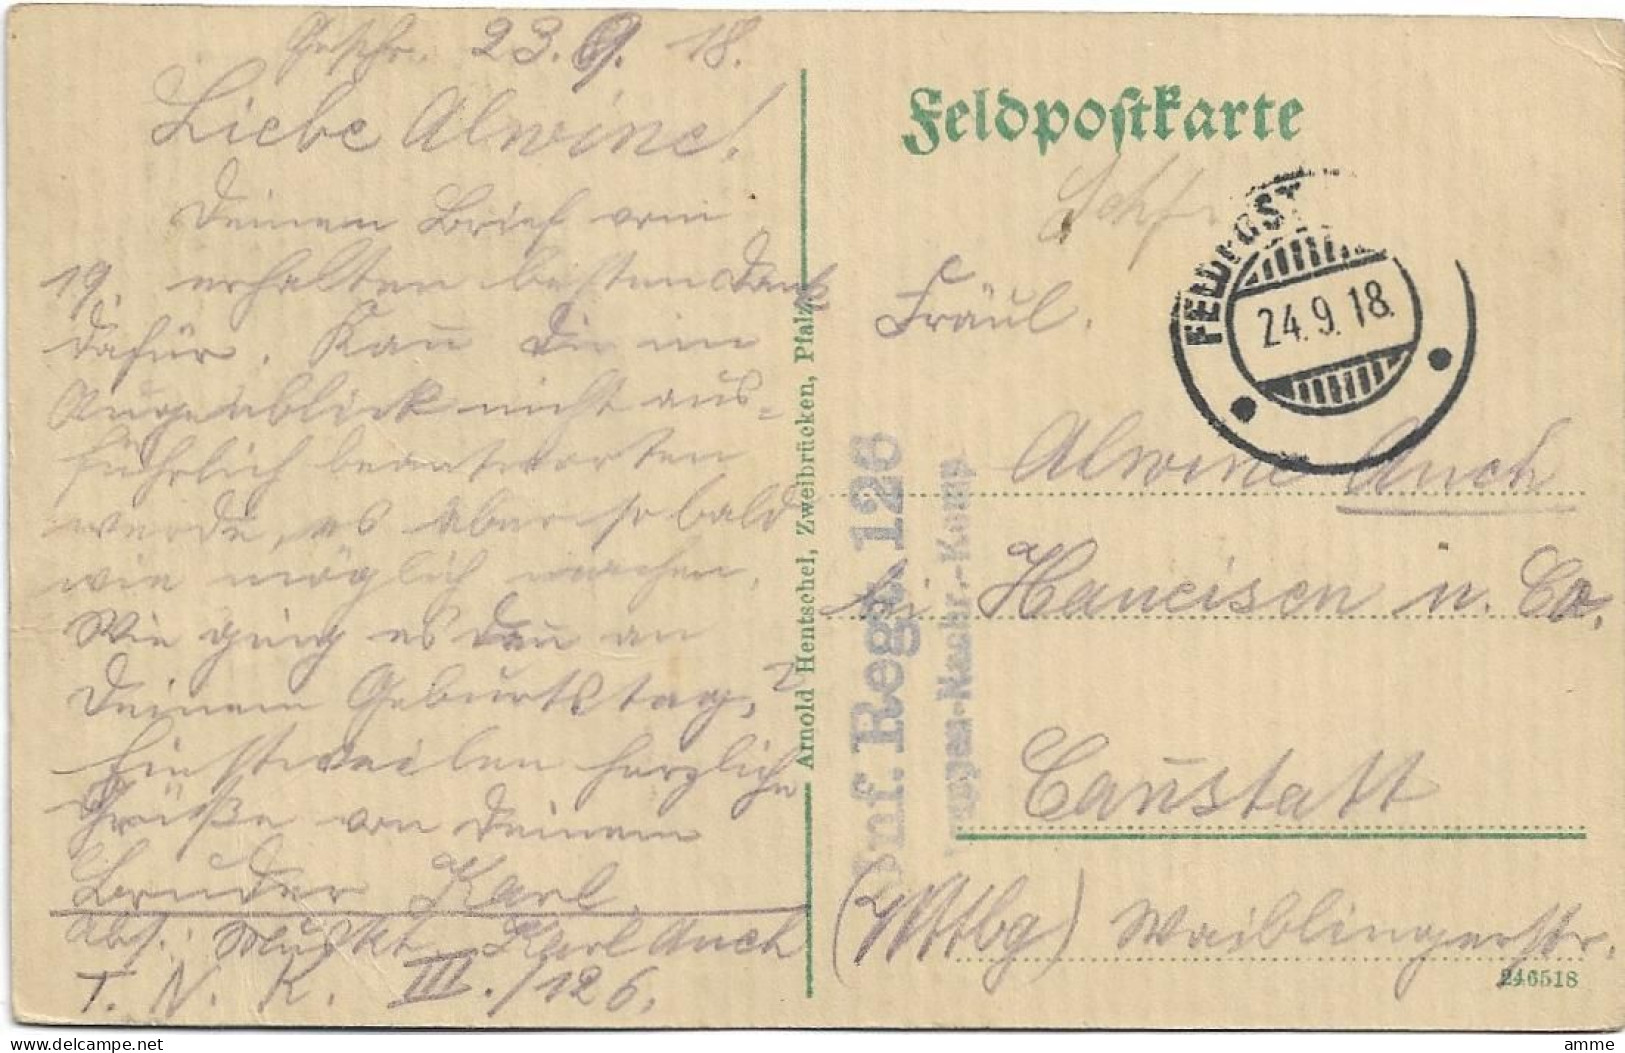 Geschr. 23.9.18.
Liebe Alwine!
Deinen Brief vom
19. erhalten besten Dank
dafür. Kan̄ Dir im
Augenblick nicht aus=
führlich beantworten
werde, es aber so bald
wie möglich machen.
Wie ging es den̄ an
Deinem Geburtstag?
Einstweilen herzliche
Grüße von Deinem
Bruder Karl.
Abs.: Muskt. Karl Auch
T. N. K. III./126.
Arnold Hentschel, Zweibrücken, Pfalz.
Feldpostkarte
FELDPOST
24.9.18.
Fräul.
Alwine Auch
bei Haueisen u. Co.
Can̄statt
(Wttbg) Waiblingerstr.
246518
Inf. Regt. 126
Nachr.-Komp
amme
delcampe.net